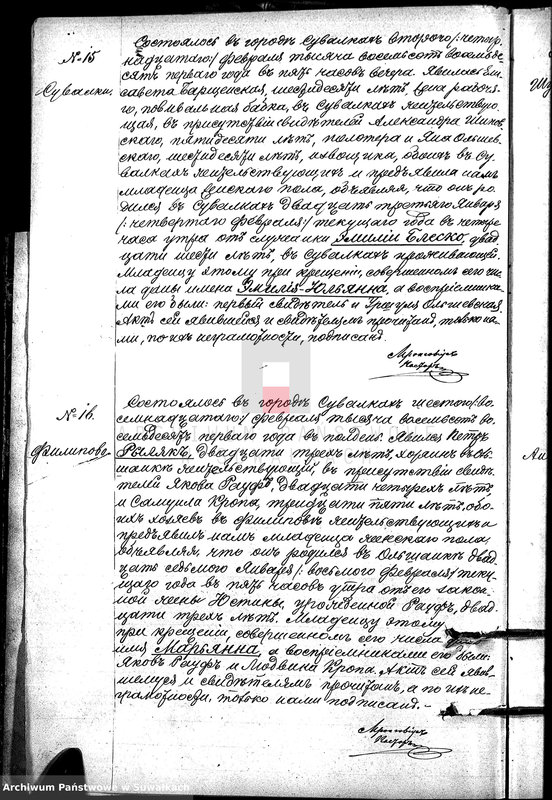 № 15
Сувалки.
Состоялось въ городѣ Сувалкахъ втораго /: четыр-
надцатаго :/ февраля тысяча восемьсотъ восемьде-
сятъ перваго года въ пять часовъ вечера. Явилась Ели-
савета Барщевская, шестидесяти лѣтъ, рабоче-
го, повивальная бабка, въ Сувалкахъ жительствую-
щая, въ присутствіи свидѣтелей Александра
пятидесяти лѣтъ, и Яна Ольшев-
скаго, шестидесяти лѣтъ, извощика, обоихъ въ Су-
валкахъ жительствующихъ и предъявила намъ
младенца женскаго пола, объявляя, что онъ ро-
дился въ Сувалкахъ двадцать третьяго Января
/: четвертаго февраля :/ текущаго года въ четыре
часа утра отъ служанки Эмиліи Блеско, двад-
цати шести лѣтъ, въ Сувалкахъ проживающей.
Младенцу этому при крещеніи, совершенномъ сего чи-
сла даны имена Эмилія-Юльянна, а воспріемника-
ми его были: первый свидѣтель и Ольшевская.
Актъ сей явившейся и свидѣтелямъ прочитанъ, только на-
ми, по ихъ неграмотности, подписанъ.
Пасторъ
№ 16.
Филипово
Состоялось въ городѣ Сувалкахъ шестаго /: во-
семнадцатаго :/ февраля тысяча восемьсотъ во-
семьдесятъ перваго года въ полдень. Явился Петръ
двадцати трехъ лѣтъ, въ Оль-
шанкѣ жительствующій, въ присутствіи свидѣ-
телей Якова Рауфъ, двадцати четырехъ лѣтъ
и Самуила Кропа, тридцати пяти лѣтъ, обо-
ихъ хозяевъ въ Филиповѣ жительствующихъ и
предъявилъ намъ младенца женскаго пола,
объявляя, что онъ родился въ Ольшанкѣ двад-
цать седьмаго Января /: восьмаго февраля :/ теку-
щаго года въ пять часовъ утра отъ его закон-
ной жены Юстины, урожденной Рауфъ, двад-
цати трехъ лѣтъ. Младенцу этому
при крещеніи, совершенномъ сего числа дано
имя Марьянна, а воспріемниками его были:
Яковъ Рауфъ и Людвина Кропа. Актъ сей явив-
шемуся и свидѣтелямъ прочитанъ, а по ихъ не-
грамотности, только нами подписанъ. –
Пасторъ
Archiwum Państwowe w Suwałkach